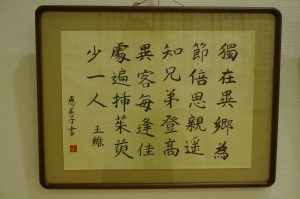 獨在異鄉為
節倍思親遥
知兄弟登高
異客每逢佳
處遍挿茱萸
少一人
王維
恵美子書